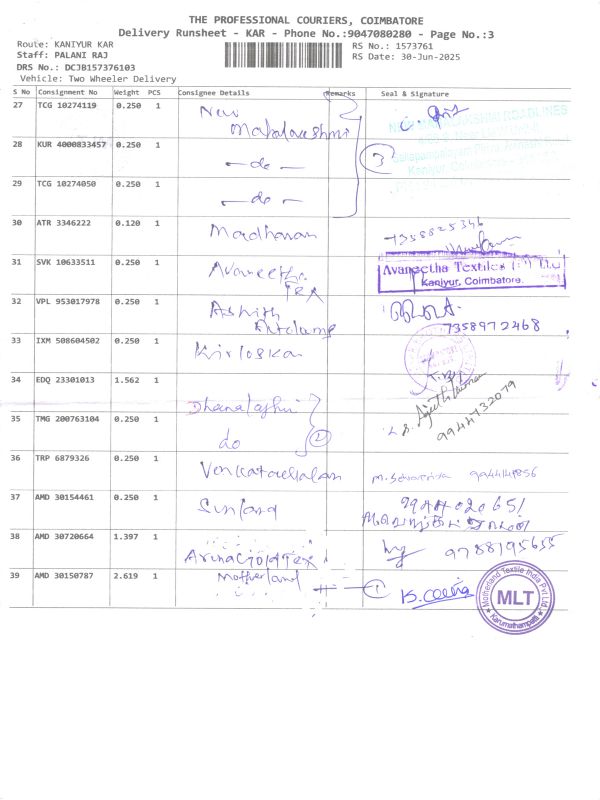 THE PROFESSIONAL COURIERS, COIMBATORE
Delivery Runsheet - KAR - Phone No.:9047080280 - Page No.:3
Route: KANIYUR KAR
RS No.: 1573761
Staff: PALANI RAJ
RS Date: 30-Jun-2025
DRS No.: DCJB157376103
Vehicle: Two Wheeler Delivery
S No Consignment No Weight PCS Consignee Details Remarks Seal & Signature
27 TCG 10274119 0.250 1 New
Mahalakshmi
28 KUR 4000833457 0.250 1 - do - 3
29 TCG 10274050 0.250 1 - do -
30 ATR 3346222 0.120 1 Madhavan 7358825346
31 SVK 10633511 0.250 1 Avaneetha
TEX
Avaneetha Textiles (P) Ltd
Kaniyur, Coimbatore.
32 VPL 953017978 0.250 1 Ashith
7358972468
33 IXM 508604502 0.250 1 Kirloskar
34 EDQ 23301013 1.562 1 Dhanalakshmi
9944732079
35 TMG 200763104 0.250 1 do 2
36 TRP 6879326 0.250 1 Venkatachalam
37 AMD 30154461 0.250 1 Sunland
38 AMD 30720664 1.397 1 9788195655
39 AMD 30150787 2.619 1 Motherland 1
Motherland Textile India Pvt Ltd
MLT
Karumathampatti